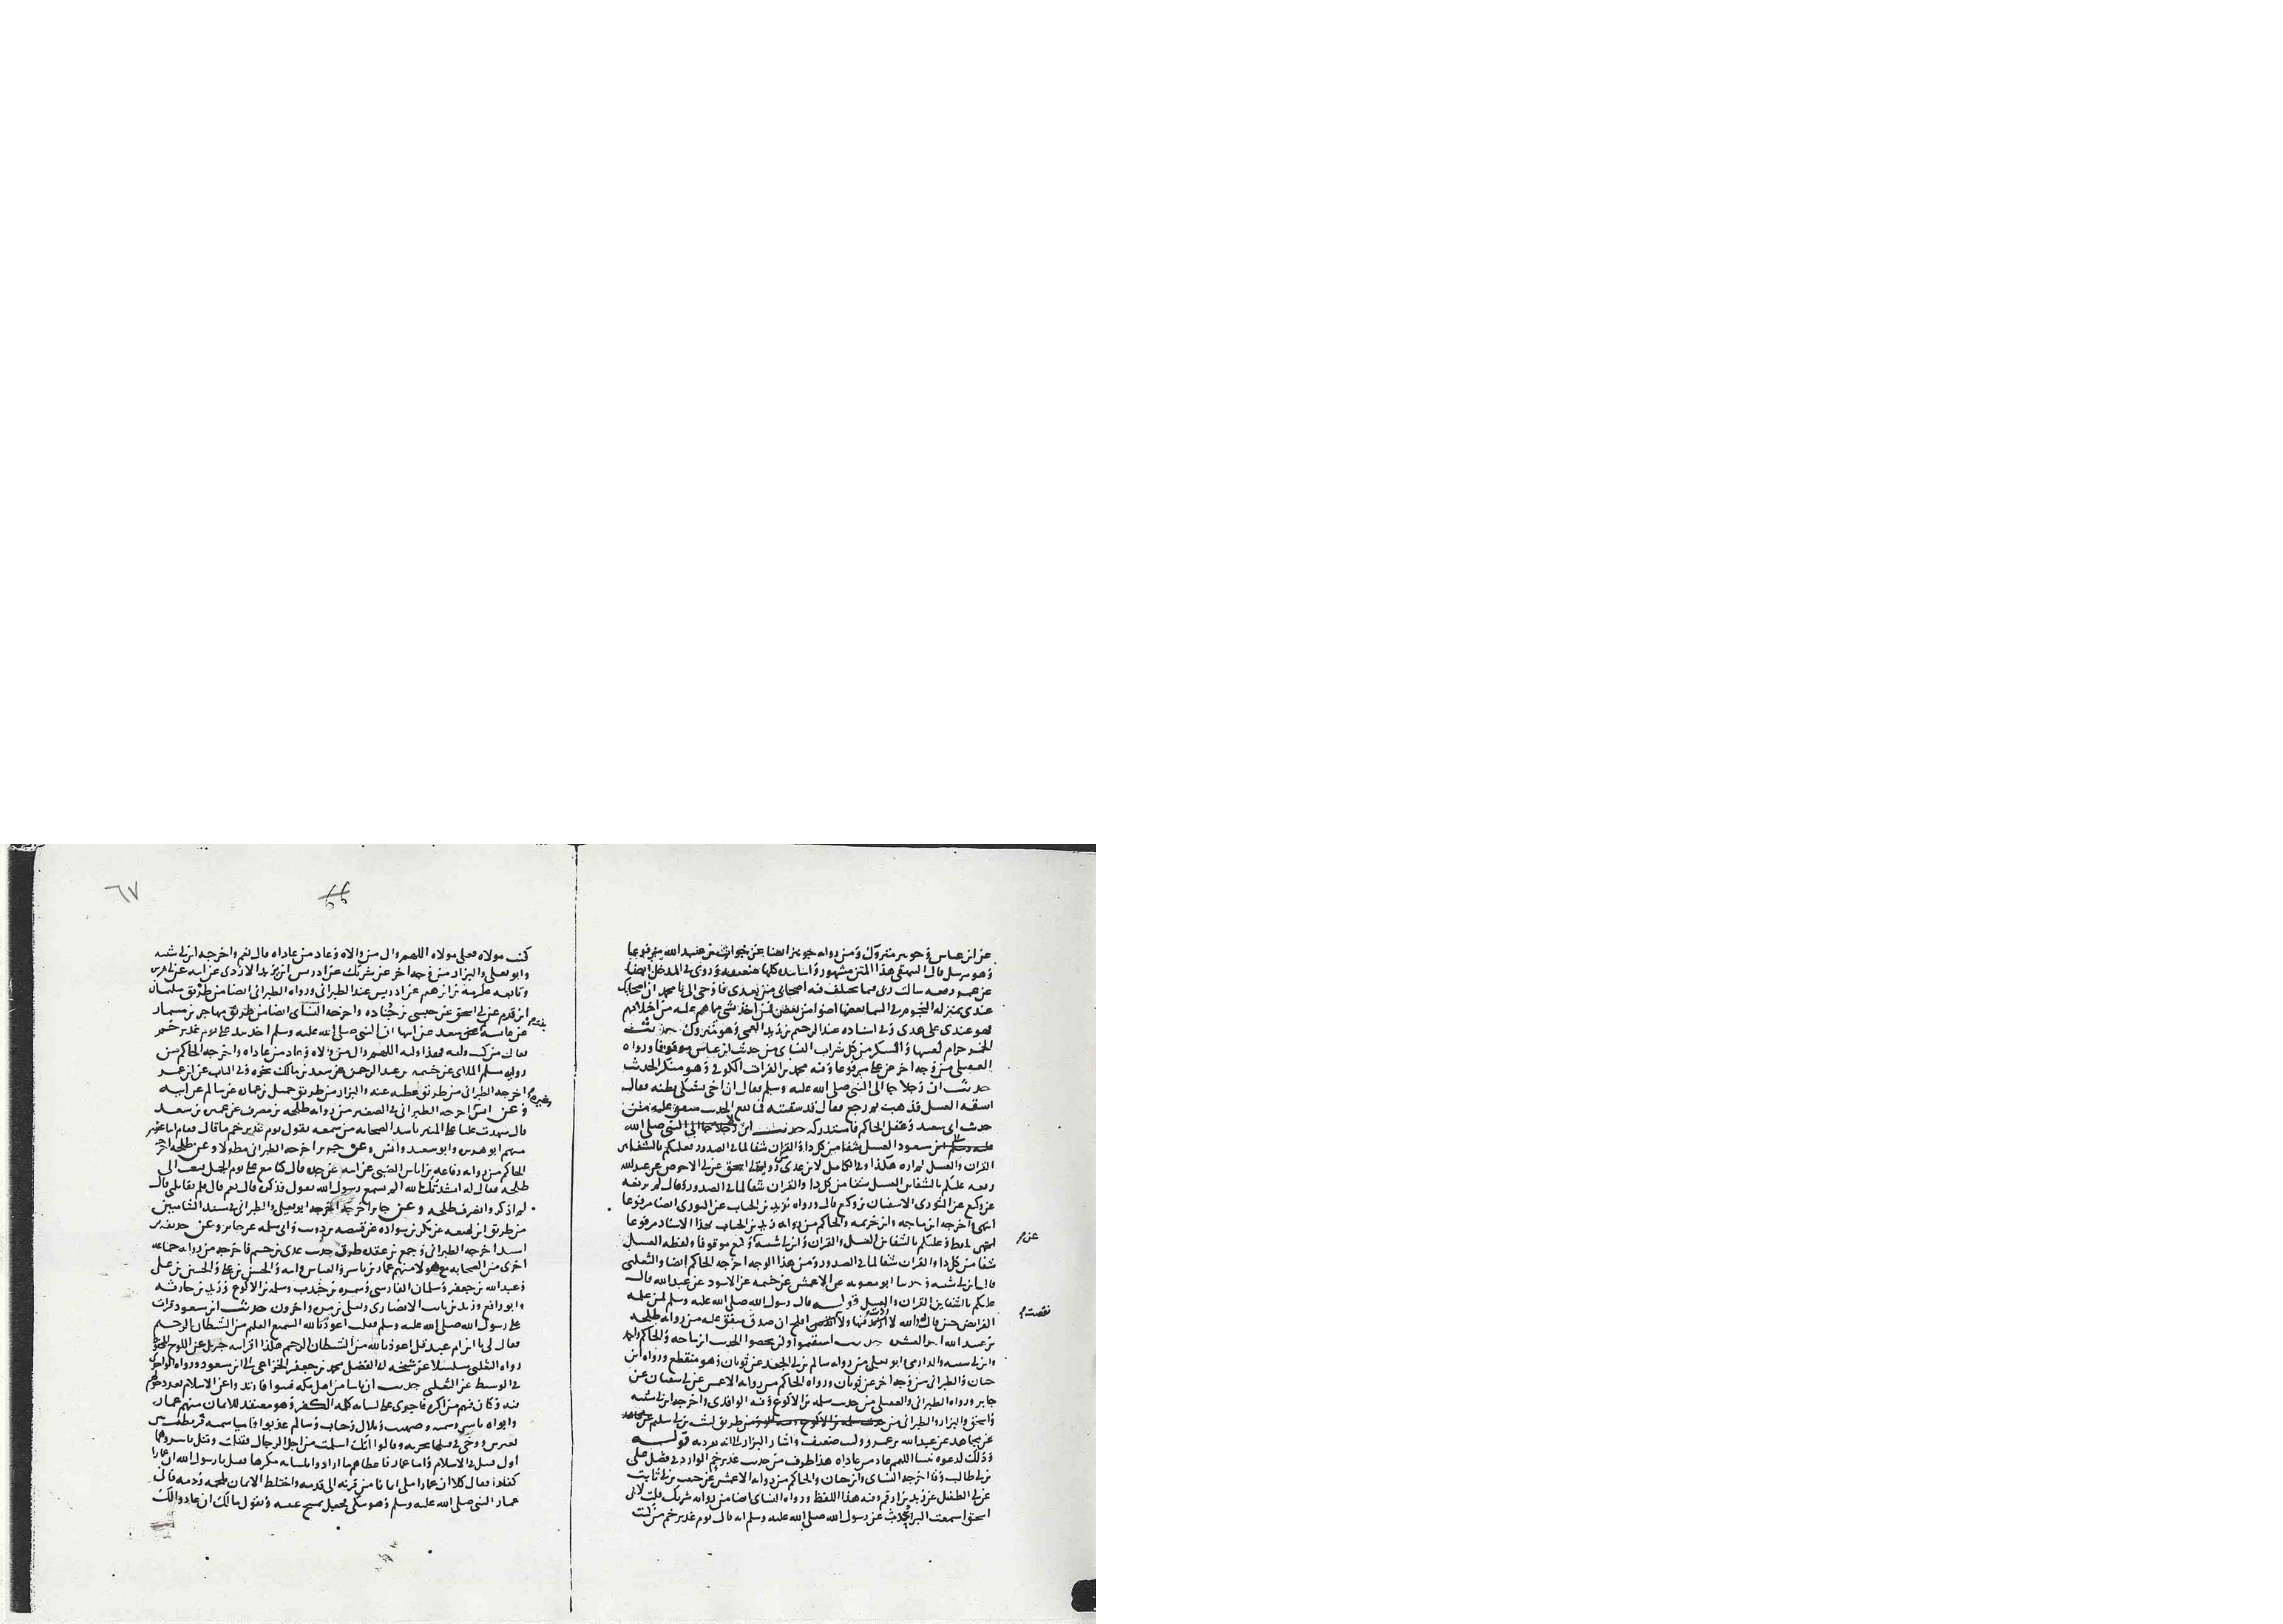 عن ابن عباس وجويبر متروك ومن رواية جويبر ايضا عن جواب بن عبيد الله مرفوعا
وهو مرسل قال البيهقي هذا المتن مشهور واسانيده كلها ضعيفه وروى في المدخل ايضا
عن عمر رفعه سالت ربي فيما يختلف فيه اصحابي من بعدي فاوحى الي يا محمد ان اصحابك
عندي بمنزله النجوم في السما بعضها اضوا من بعض فمن اخذ بشي مما هم عليه من اختلافهم
فهو عندي على هدى وفي اسناده عبد الرحيم بن زيد العمي وهو متروك حديث
الخمر حرام لعينها والسكر من كل شراب النساي من حديث ابن عباس موقوفا ورواه
العقيلي من وجه اخر عن علي مرفوعا وفيه محمد بن الفرات الكوفي وهو منكر الحديث
حديث ان رجلا جا الى النبي صلى الله عليه وسلم فقال ان اخي يشتكي بطنه فقال
اسقه العسل فذهب ثم رجع فقال قد سقيته فما نفع الحديث متفق عليه من
حديث ابي سعيد وغفل الحاكم فاستدركه حديث ابن
مسعود العسل شفا من كل دا والقران شفا لما في الصدور فعليكم بالشفاين
القران والعسل لم اره هكذا وفي الكامل لابن عدي من رواية ابي اسحق عن ابي الاحوص عن عبد الله
رفعه عليكم بالشفاين العسل شفا من كل دا والقران شفا لما في الصدور وقال لم يرفعه
عن وكيع عن الثوري الا سفيان بن وكيع قال ورواه زيد بن الحباب عن الثوري ايضا مرفوعا
انتهى واخرجه ابن ماجه وابن خزيمه والحاكم من رواية زيد بن الحباب بهذا الاسناد مرفوعا
انتهى بلفظ وعليكم بالشفاين العسل والقران وابن ابي شيبه عن وكيع موقوفا ولفظه العسل
شفا من كل دا والقران شفا لما في الصدور ومن هذا الوجه اخرجه الحاكم ايضا والثعلبي
قال ابن ابي شيبه وحدثنا ابو معويه عن الاعمش عن خيثمه عن الاسود عن عبد الله قال
عليكم بالشفاين القران والعسل قوله قال رسول الله صلى الله عليه وسلم لمن علمه
الفرايض حين قال والله لا ازيد فيها ولا نقصت افلح ان صدق متفق عليه من رواية طلحه
بن عبيد الله احد العشره حديث استقيموا ولن تحصوا الحديث ابن ماجه والحاكم واحمد
وابن ابي شيبه والدارمي وابو يعلى من رواية سالم بن ابي الجعد عن ثوبان وهو منقطع ورواه ابن
حبان والطبراني من وجه اخر عن ثوبان ورواه الحاكم من رواية الاعمش عن ابي سفيان عن
جابر ورواه الطبراني والعقيلي من حديث سلمه بن الاكوع وفيه الواقدي واخرجه ابن ابي شيبه
واسحق والبزار والطبراني من طريق ليث بن ابي سليم
عن مجاهد عن عبد الله بن عمرو وليث ضعيف واشار البزار الى انه تفرد به قوله
وذلك لدعوة نبينا اللهم عاد من عاداه هذا طرف من حديث غدير خم الوارد في فضل علي
بن ابي طالب وقد اخرجه النساي وابن حبان والحاكم من رواية الاعمش عن حبيب بن ابي ثابت
عن ابي الطفيل عن زيد بن ارقم وفيه هذا اللفظ ورواه النساي ايضا من رواية شريك قلت لابي
اسحق اسمعت البرا يحدث عن رسول الله صلى الله عليه وسلم انه قال يوم غدير خم من كنت
عن
نقصت
٦٧
٦٦
كنت مولاه فعلي مولاه اللهم وال من والاه وعاد من عاداه قال نعم واخرجه ابن ابي شيبه
وابو يعلى والبزار من وجه اخر عن شريك عن ادريس بن يزيد الاودي عن ابيه عن ابي هريره
وتابعه عكرمة بن ابرهيم عن ادريس عند الطبراني ورواه الطبراني ايضا من طريق سليمان
ابن قرم عن ابي اسحق عن حبشي بن جناده واخرجه النساي ايضا من طريق مهاجر بن مسمار
عن عايشة بنت سعد عن ابيها ان النبي صلى الله عليه وسلم اخذ بيد علي يوم غدير خم
فقال من كنت وليه فهذا وليه اللهم وال من والاه وعاد من عاداه واخرجه الحاكم من
رواية مسلم الملاي عن خيثمه بن عبد الرحمن عن سعد بن مالك نحوه وفي الباب عن ابن عمر
اخرجه الطبراني من طريق عطيه عنه والبزار من طريق جميل بن عماره عن سالم عن ابيه
وعن انس اخرجه الطبراني في الصغير من رواية طلحه بن مصرف عن عميره بن سعد
قال شهدت عليا على المنبر ناشد الصحابه من سمعه يقول يوم غدير خم ما قال فقام اثنا عشر
منهم ابو هريره وابو سعيد وانس وعن جرير اخرجه الطبراني مطولا وعن طلحه اخرجه
الحاكم من رواية رفاعه بن اياس الضبي عن ابيه عن جده قال كنا مع علي يوم الجمل فبعث الى
طلحه فقال له انشدتك الله الم تسمع رسول الله يقول فذكره قال نعم قال فلم تقاتلني قال
لم اذكر وانصرف طلحه وعن جابر اخرجه ابو يعلى والطبراني في مسند الشاميين
من طريق ابن لهيعه عن بكر بن سواده عن قبيصه بن ذويب وابي سلمه عن جابر وعن حذيفه بن
اسيد اخرجه الطبراني وجمع بن عقده طرق حديث غدير خم فاخرجه من رواية جماعه
اخرى من الصحابه مع هولا منهم عمار بن ياسر والعباس وابنه والحسن بن علي والحسين بن علي
وعبد الله بن جعفر وسلمان الفارسي وسمره بن جندب وسلمه بن الاكوع وزيد بن حارثه
وابو رافع وزيد بن ثابت الانصاري ويعلى بن مره واخرون حديث ابن مسعود قرات
على رسول الله صلى الله عليه وسلم فقلت اعوذ بالله السميع العليم من الشيطان الرجيم
فقال لي يا ابن ام عبد قل اعوذ بالله من الشيطان الرجيم هكذا اقرانيه جبريل عن اللوح المحفوظ
رواه الثعلبي مسلسلا عن شيخه ابي الفضل محمد بن جعفر الخزاعي الى ابن مسعود ورواه الواحدي
في الوسيط عن الثعلبي حديث ان ناسا من اهل مكه فتنوا فارتدوا عن الاسلام بعد دخولهم
فيه وكان فيهم من اكره فاجرى على لسانه كلمه الكفر وهو معتقد للايمان منهم عمار
وابواه ياسر وسميه وصهيب وبلال وخباب وسالم عذبوا فاما سميه فربطت بين
بعيرين ووجئ في قبلها بحربه وقالوا انك اسلمت من اجل الرجال فقتلت وقتل ياسر وهما
اول قتيلين في الاسلام واما عمار فاعطاهم ما ارادوا بلسانه مكرها فقيل يا رسول الله ان عمارا
كفر فقال كلا ان عمارا ملئ ايمانا من قرنه الى قدمه واختلط الايمان بلحمه ودمه فاتى
عمار النبي صلى الله عليه وسلم وهو يبكي فجعل يمسح عينيه ويقول مالك ان عادوا لك
بنت
وغيره